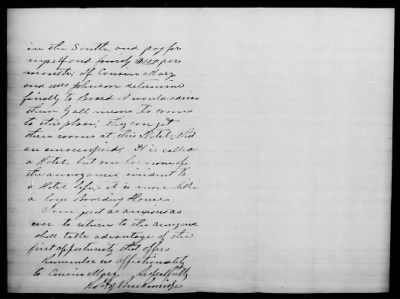 in the South, and pay for
myself and family $100 per
month. If Cousin Mary
and Mrs Johnson determine
finally to Board I would advise
them by all means to come
to this place; they can get
them rooms at this Hotel, that
are unoccupied. It is called
a Hotel, but one has none of
the annoyances incident to
a Hotel life, it is more like
a large Boarding House
I am just as anxious as
ever to return to the army and
shall take advantage of the
first opportunity that offers
Remember us affectionately
to Cousin Mary
Robt J Breckinridge